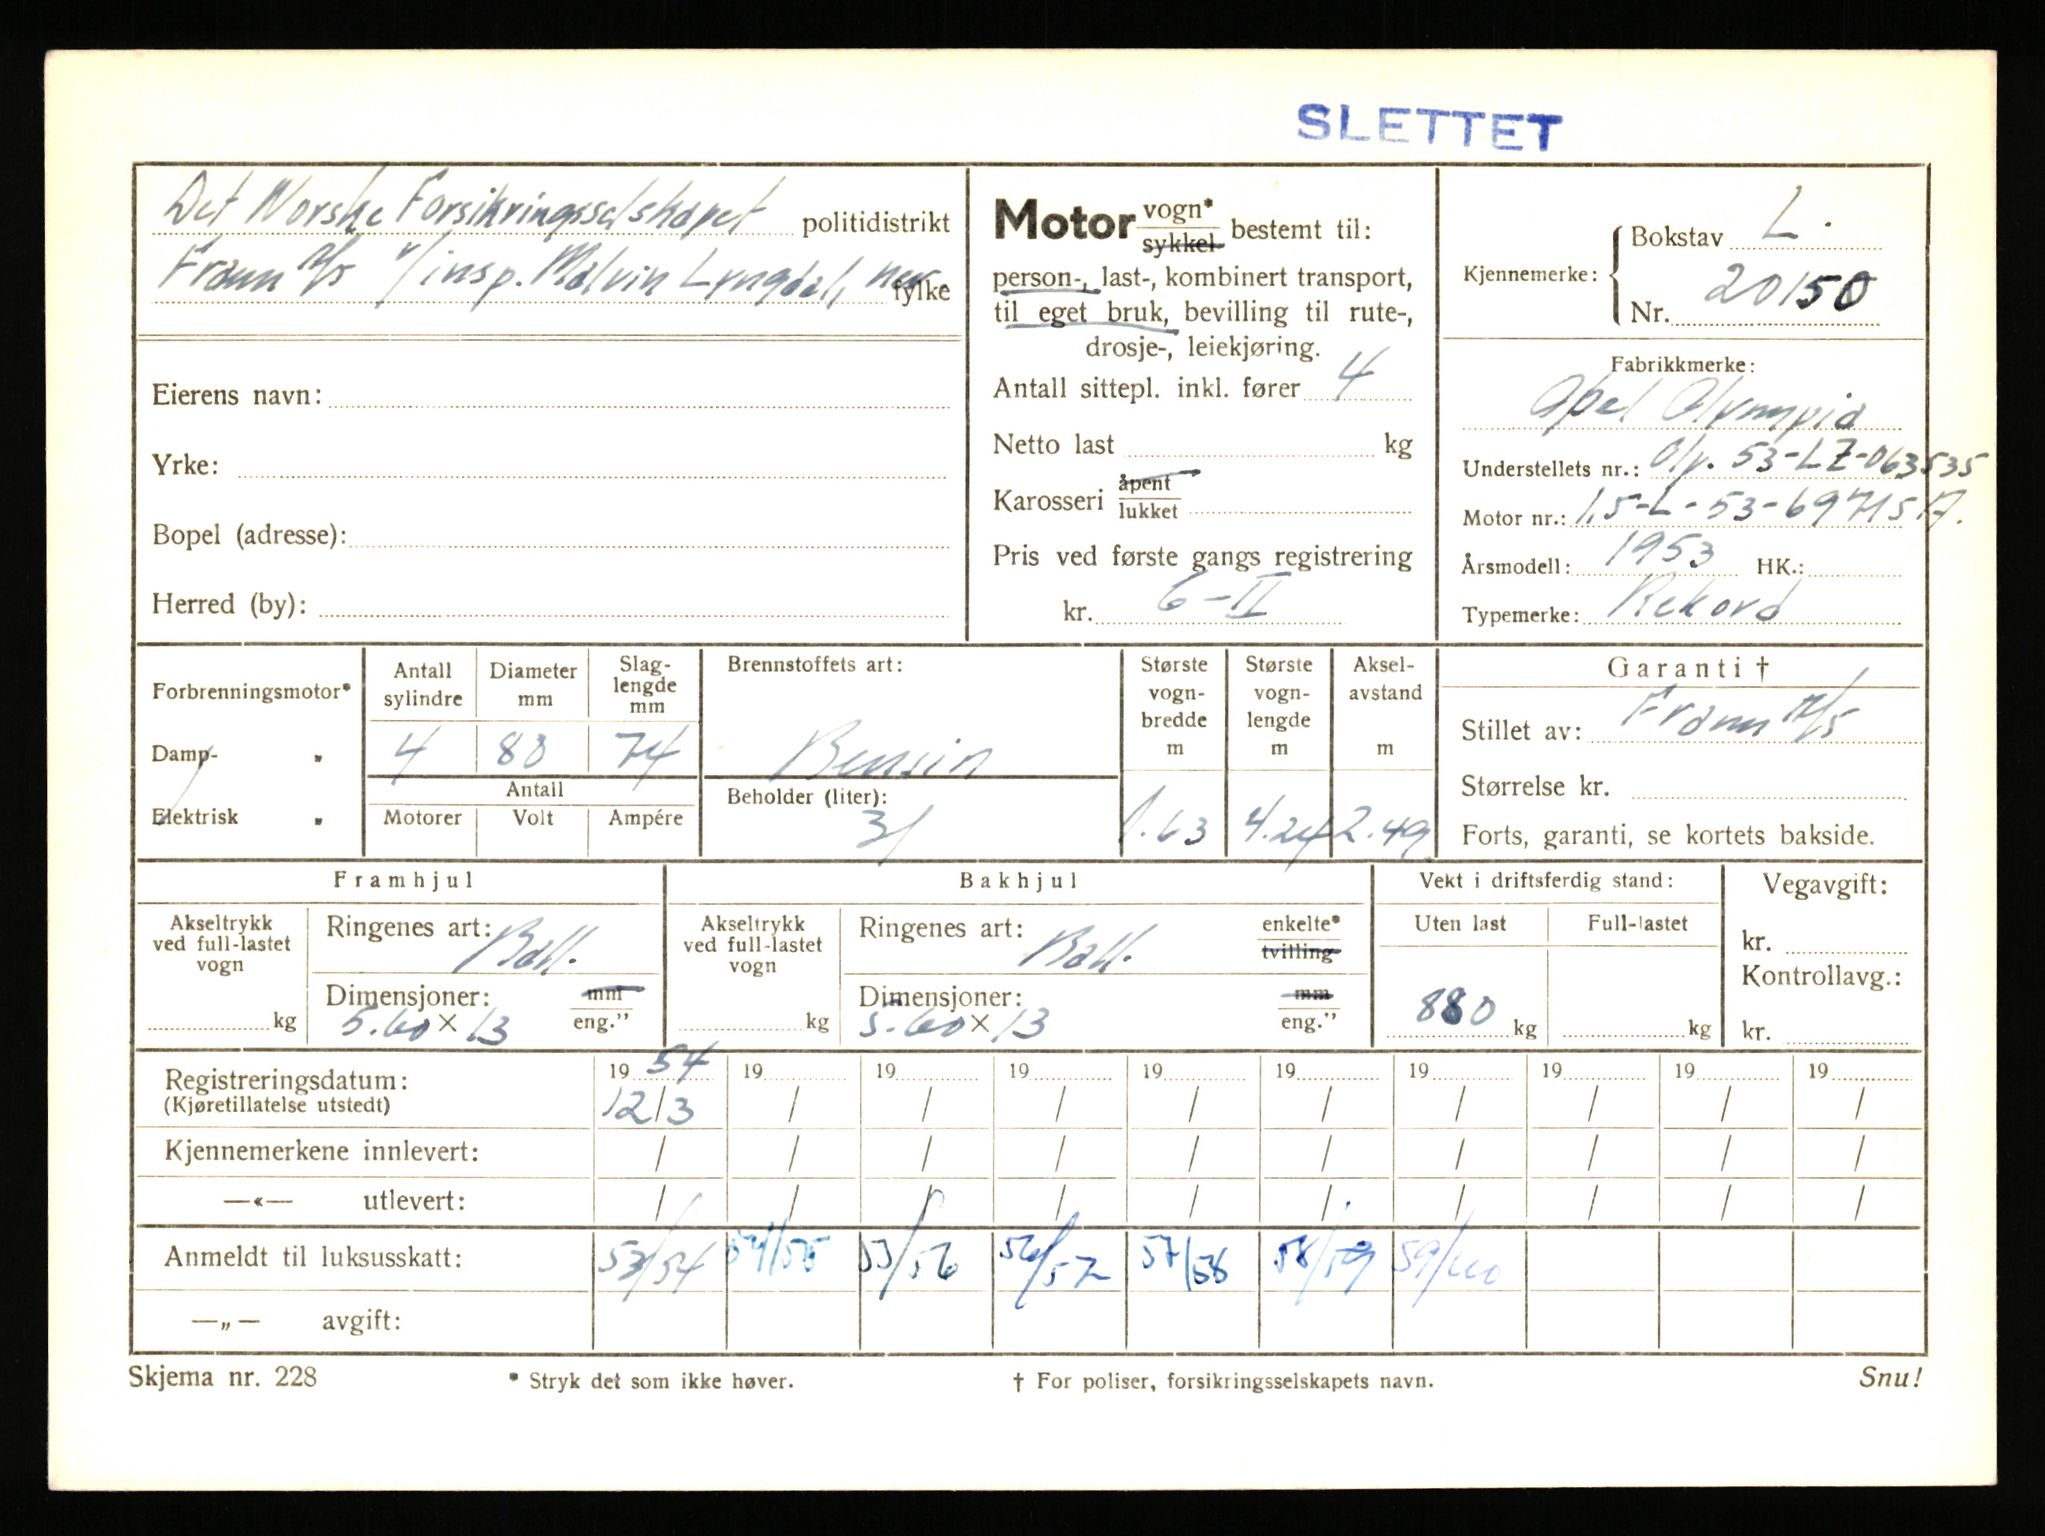 SLETTET
Det Norske Forsikringsselskapet politidistrikt
Fram A/S v/insp. Malvin Lyngdal, fylke
Eierens navn:
Yrke:
Bopel (adresse):
Herred (by):
Motor vogn* sykkel bestemt til:
person-, last-, kombinert transport,
til eget bruk, bevilling til rute-,
drosje-, leiekjøring.
Antall sittepl. inkl. fører 4
Netto last kg
Karosseri åpent lukket
Pris ved første gangs registrering
kr. 6-II
Kjennemerke: Bokstav L.
Nr. 20150
Fabrikkmerke:
Opel Olympia
Understellets nr.: Oly. 53-LZ-063535
Motor nr.: 1,5-L-53-6971517.
Årsmodell: 1953 HK.:
Typemerke: Rekord
Forbrenningsmotor*
Damp- „
Elektrisk „
Antall sylindre Diameter mm Slag-lengde mm
4 80 74
Antall
Motorer Volt Ampére
Brennstoffets art:
Bensin
Beholder (liter):
31
Største vogn-bredde m
1.63
Største vogn-lengde m
4.24
Aksel-avstand m
2.49
Garanti †
Stillet av: Fram A/S
Størrelse kr.
Forts, garanti, se kortets bakside.
Framhjul
Akseltrykk ved full-lastet vogn
kg
Ringenes art: Ball.
Dimensjoner: mm
5.60 × 13 eng."
Bakhjul
Akseltrykk ved full-lastet vogn
kg
Ringenes art: Ball. enkelte* tvilling
Dimensjoner: mm
5.60 × 13 eng."
Vekt i driftsferdig stand:
Uten last Full-lastet
880 kg kg
Vegavgift:
kr.
Kontrollavg.:
kr.
Registreringsdatum: 19 54 19 19 19 19 19 19 19 19 19
(Kjøretillatelse utstedt) 12/3 / / / / / / / / /
Kjennemerkene innlevert: / / / / / / / / / /
—«— utlevert: / / / / / / / / / /
Anmeldt til luksusskatt: 53/54 54/55 55/56 56/57 57/58 58/59 59/60
—„— avgift:
Skjema nr. 228 * Stryk det som ikke høver. † For poliser, forsikringsselskapets navn. Snu!